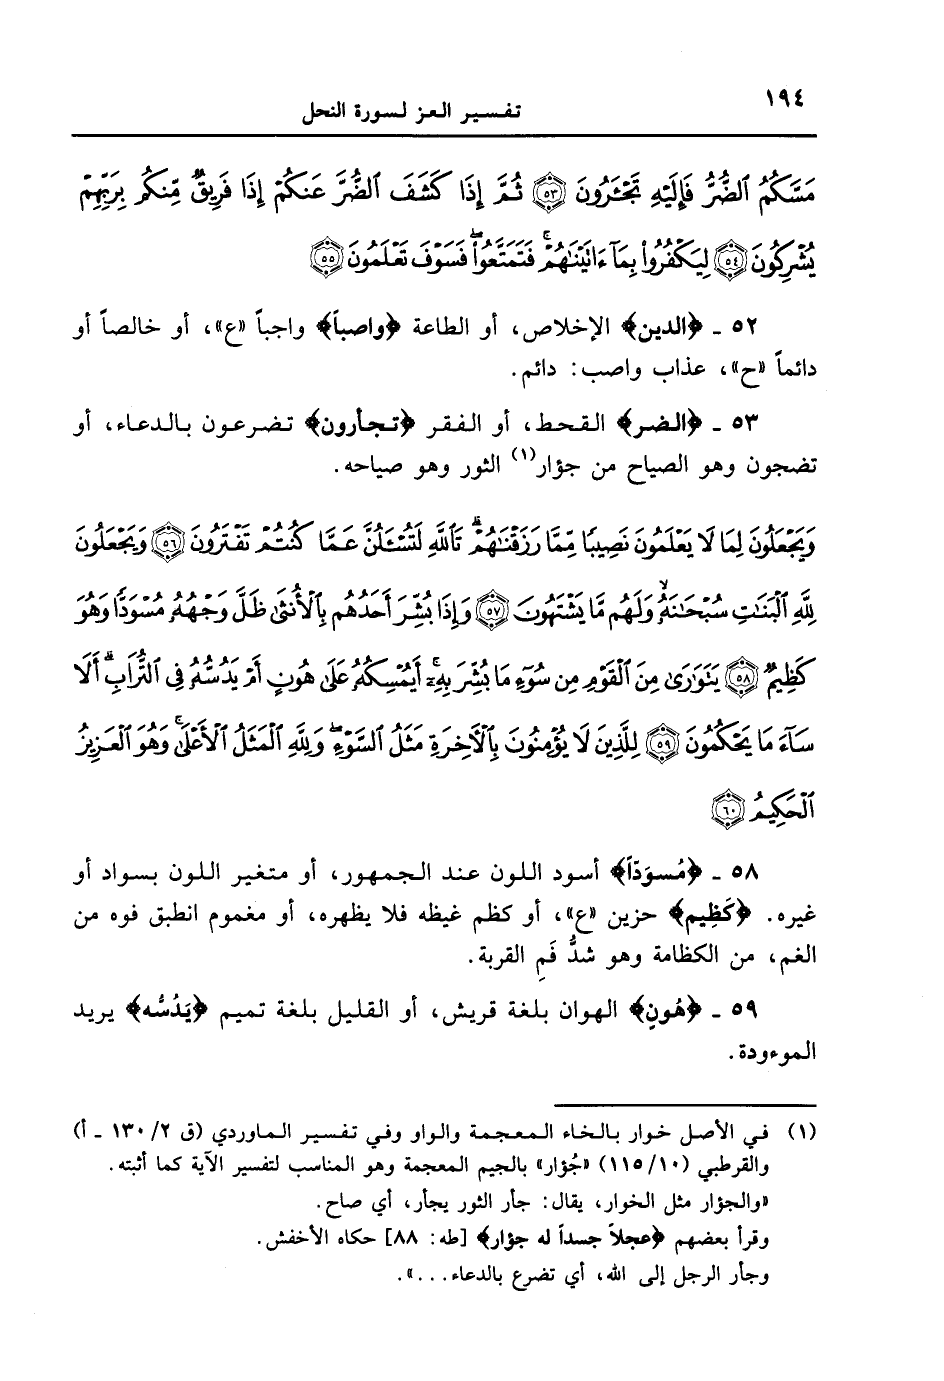 ١٩٤
تفسير العز لسورة النحل
مَسَّكُمُ ٱلضُّرُّ فَإِلَيْهِ تَجْـَٔرُونَ ٥٣ ثُمَّ إِذَا كَشَفَ ٱلضُّرَّ عَنكُمْ إِذَا فَرِيقٌ مِّنكُم بِرَبِّهِمْ
يُشْرِكُونَ ٥٤ لِيَكْفُرُوا۟ بِمَآ ءَاتَيْنَـٰهُمْ ۚ فَتَمَتَّعُوا۟ ۖ فَسَوْفَ تَعْلَمُونَ ٥٥
٥٢ ـ ﴿الدين﴾ الإخلاص، أو الطاعة ﴿واصباً﴾ واجباً «ع»، أو خالصاً أو
دائماً «ح»، عذاب واصب: دائم.
٥٣ ـ ﴿الضر﴾ القحط، أو الفقر ﴿تجأرون﴾ تضرعون بالدعاء، أو
تضجون وهو الصياح من جؤار(١) الثور وهو صياحه.
وَيَجْعَلُونَ لِمَا لَا يَعْلَمُونَ نَصِيبًا مِّمَّا رَزَقْنَـٰهُمْ ۗ تَٱللَّهِ لَتُسْـَٔلُنَّ عَمَّا كُنتُمْ تَفْتَرُونَ ٥٦ وَيَجْعَلُونَ
لِلَّهِ ٱلْبَنَـٰتِ سُبْحَـٰنَهُۥ ۙ وَلَهُم مَّا يَشْتَهُونَ ٥٧ وَإِذَا بُشِّرَ أَحَدُهُم بِٱلْأُنثَىٰ ظَلَّ وَجْهُهُۥ مُسْوَدًّا وَهُوَ
كَظِيمٌ ٥٨ يَتَوَٰرَىٰ مِنَ ٱلْقَوْمِ مِن سُوٓءِ مَا بُشِّرَ بِهِۦٓ ۚ أَيُمْسِكُهُۥ عَلَىٰ هُونٍ أَمْ يَدُسُّهُۥ فِى ٱلتُّرَابِ ۗ أَلَا
سَآءَ مَا يَحْكُمُونَ ٥٩ لِلَّذِينَ لَا يُؤْمِنُونَ بِٱلْـَٔاخِرَةِ مَثَلُ ٱلسَّوْءِ ۖ وَلِلَّهِ ٱلْمَثَلُ ٱلْأَعْلَىٰ ۚ وَهُوَ ٱلْعَزِيزُ
ٱلْحَكِيمُ ٦٠
٥٨ ـ ﴿مُسوَدّاً﴾ أسود اللون عند الجمهور، أو متغير اللون بسواد أو
غيره. ﴿كَظِيم﴾ حزين «ع»، أو كظم غيظه فلا يظهره، أو مغموم انطبق فوه من
الغم، من الكظامة وهو شدُّ فَمِ القربة.
٥٩ ـ ﴿هُونٍ﴾ الهوان بلغة قريش، أو القليل بلغة تميم ﴿يَدُسُّه﴾ يريد
الموءودة.
(١) في الأصل خوار بالخاء المعجمة والواو وفي تفسير الماوردي (ق ٢/ ١٣٠ ـ أ)
والقرطبي (١١٥/١٠) «جُؤار» بالجيم المعجمة وهو المناسب لتفسير الآية كما أثبته.
«والجؤار مثل الخوار، يقال: جأر الثور يجأر، أي صاح.
وقرأ بعضهم ﴿عجلاً جسداً له جؤار﴾ [طه: ٨٨] حكاه الأخفش.
وجأر الرجل إلى الله، أي تضرع بالدعاء. . .».